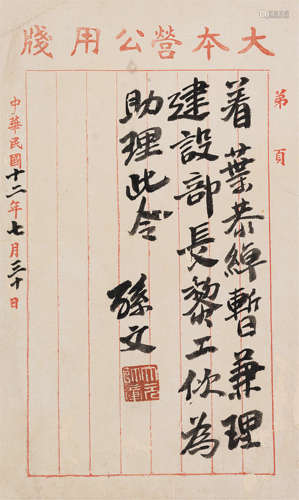 大本營公用牋
第 頁
着葉恭綽暫兼理
建設部長黎工佽為
助理此令
孫文
中華民國十二年七月三十日